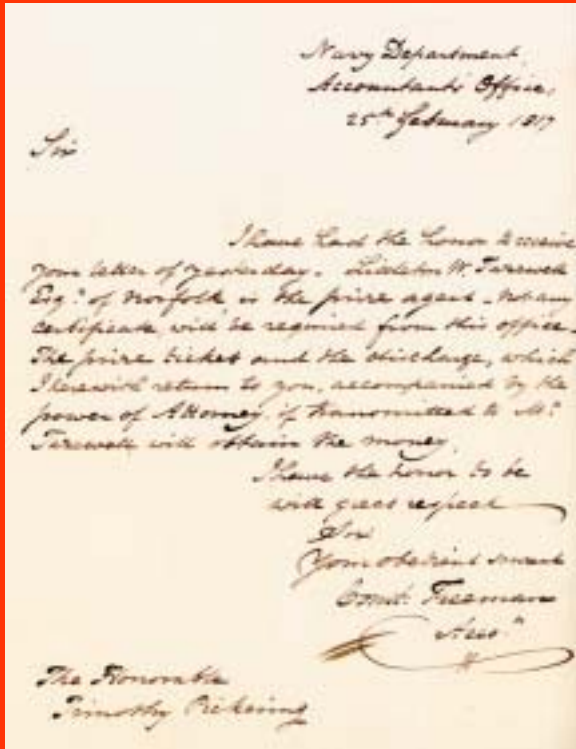 Navy Department,
Accountants Office,
25th February 1817
Sir
I have had the honor to receive
your letter of yesterday. Littleton W. Tazewell
Esqr. of Norfolk is the prize agent. Not any
certificate will be required from this office.
The prize ticket and the discharge, which
I herewith return to you, accompanied by the
power of Attorney, if transmitted to Mr.
Tazewell will obtain the money.
I have the honor to be
with great respect
Sir
Your obedient servant
Const. Freeman
The Honorable
Timothy Pickering